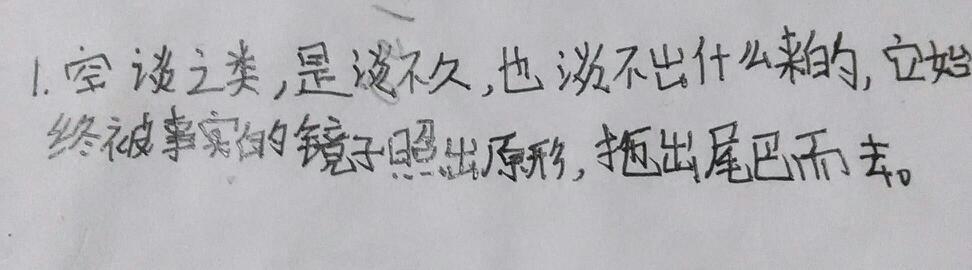 1.空谈之类,是谈不久,也谈不出什么来的,它始
终被事实的镜子照出原形,拖出尾巴而去。